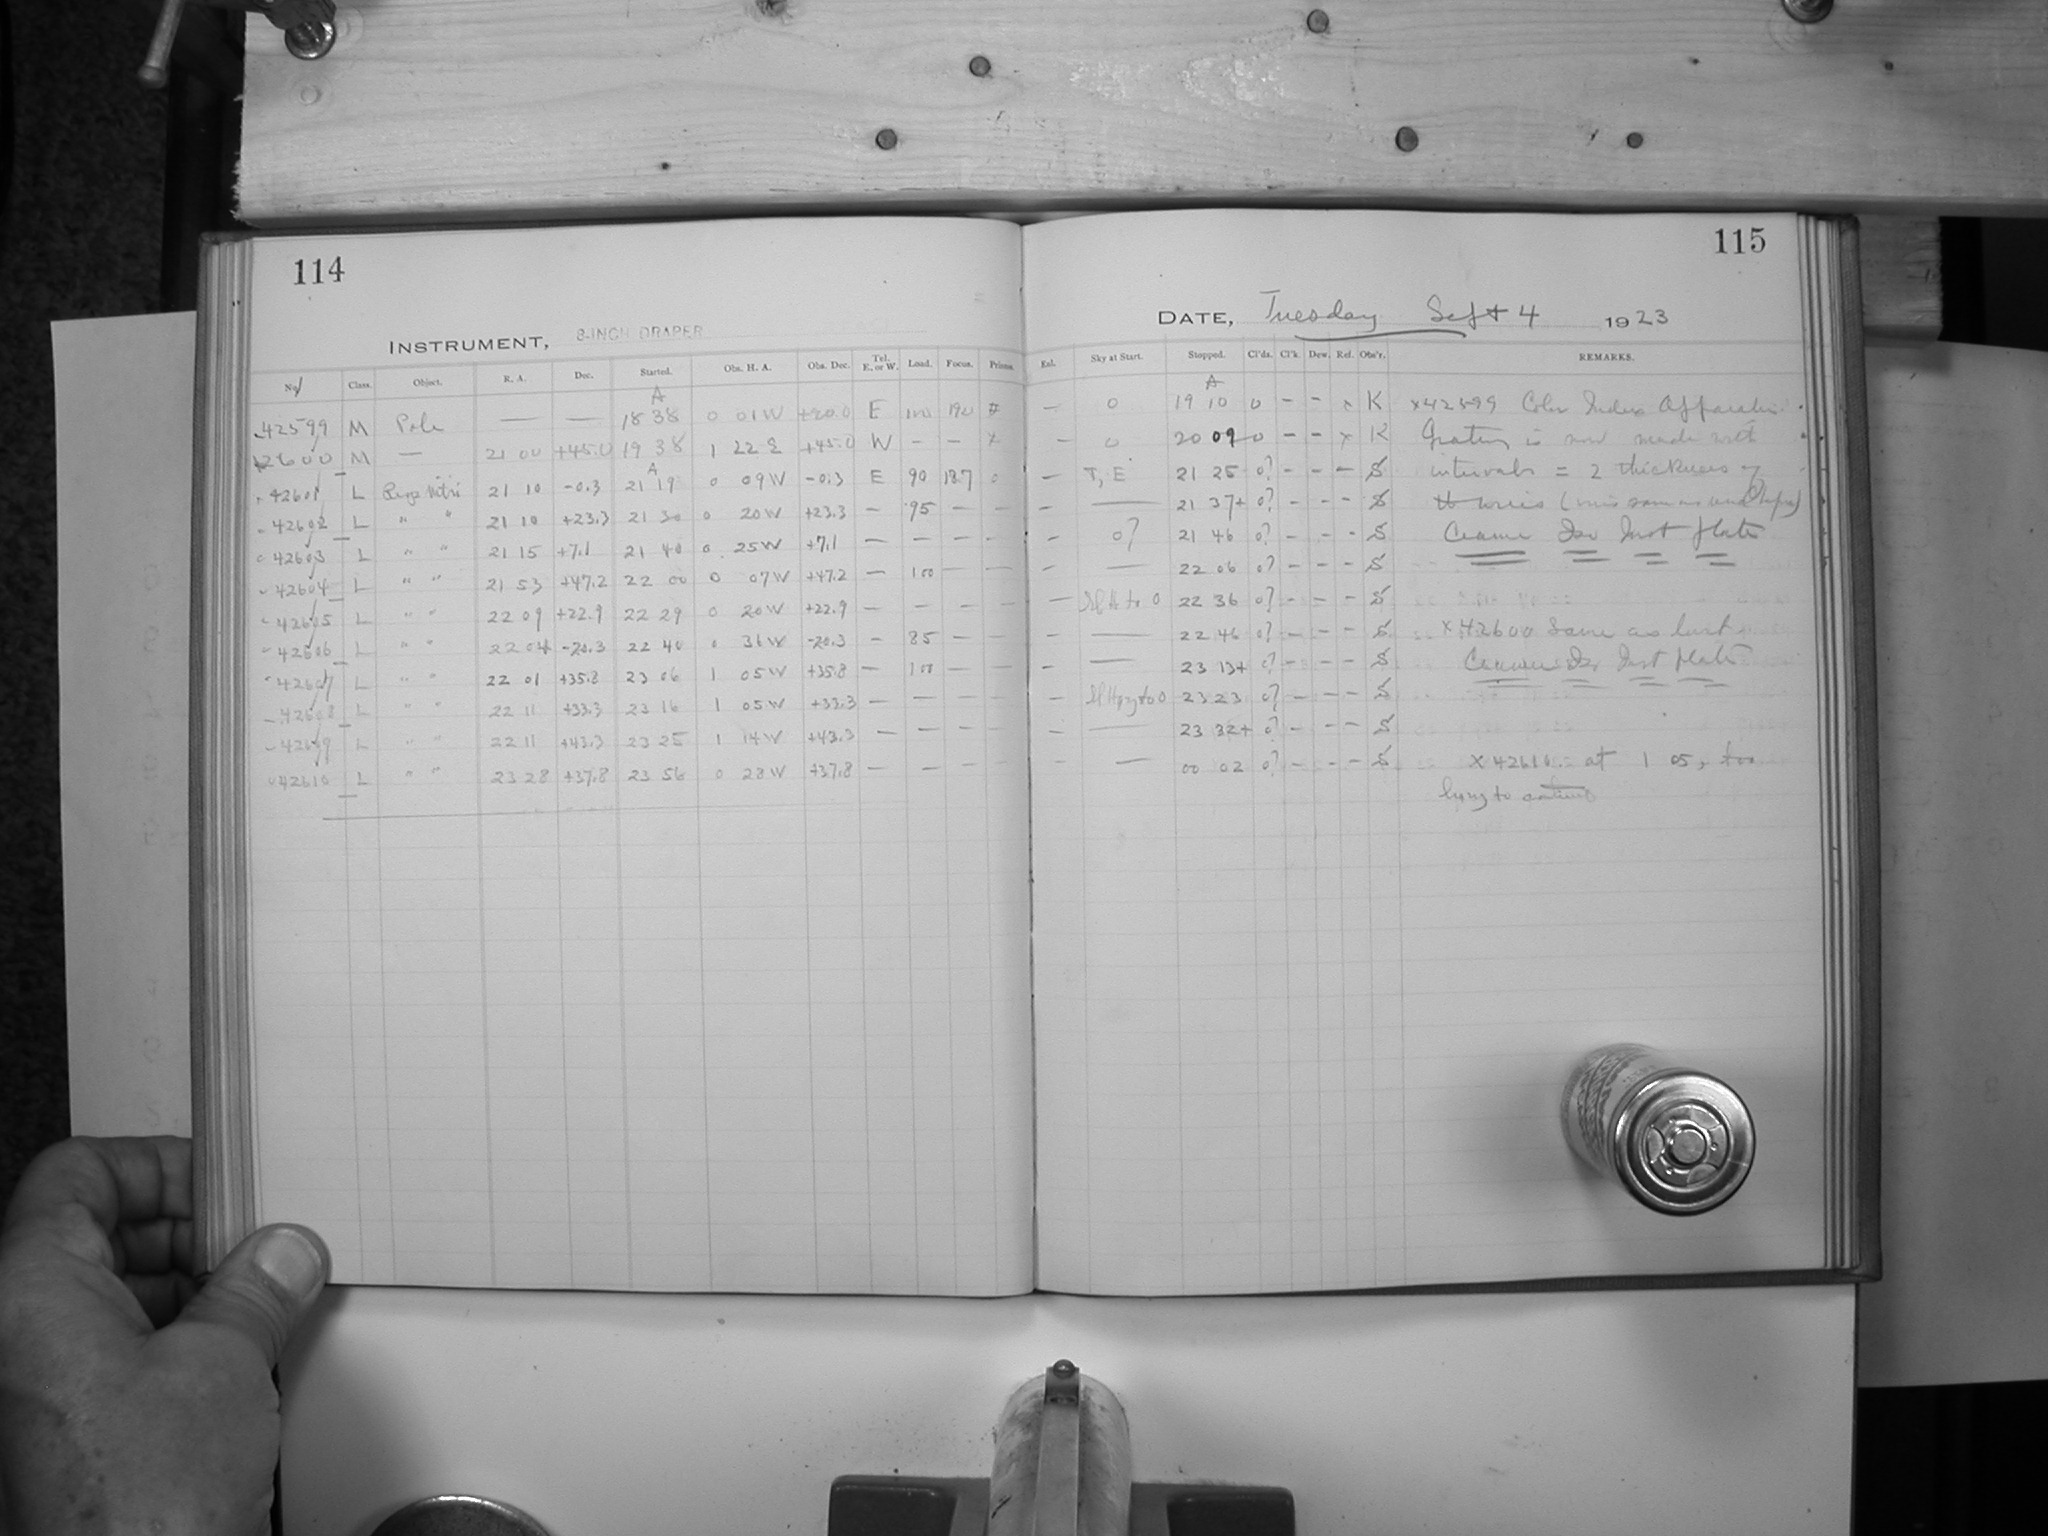 114
INSTRUMENT, 8-INCH DRAPER
No. Class. Object. R. A. Dec. Started. Obs. H. A. Obs. Dec. Tel. E. or W. Load. Focus. Prisms.
A
42599 M Pole — — 18 38 0 01 W +20.0 E 100 190
42600 M — 21 00 +45.0 19 38 1 22 E +45.0 W - - x
A
42601 L 21 10 -0.3 21 19 0 09 W -0.3 E 90 18.7 0
42602 L " " 21 10 +23.3 21 30 0 20 W +23.3 - 95 - -
42603 L " " 21 15 +7.1 21 40 0 25 W +7.1 - - - -
42604 L " " 21 53 +47.2 22 00 0 07 W +47.2 - 100 - -
42605 L " " 22 09 +22.9 22 29 0 20 W +22.9 - - - -
42606 L " " 22 04 -20.3 22 40 0 36 W -20.3 - 85 - -
42607 L " " 22 01 +35.8 23 06 1 05 W +35.8 - 100 - -
42608 L " " 22 11 +33.3 23 16 1 05 W +33.3 - - - -
42609 L " " 22 11 +43.3 23 25 1 14 W +43.3 - - - -
42610 L " " 23 28 +37.8 23 56 0 28 W +37.8 - - - -
115
DATE, Tuesday Sept 4 1923
Exl. Sky at Start. Stopped. Cl'ds. Cl'k. Dew. Ref. Obs'r. REMARKS.
A
- 0 19 10 0 - - x K x42599 Color Index Apparatus.
- 0 20 09 0 - - x K Grating is now made with
- T, E 21 25 0? - - - S intervals = 2 thickness of
- — 21 37+ 0? - - - S wires
- 0? 21 46 0? - - - S Cramer Iso Inst plate
- — 22 06 0? - - - S
- to 0 22 36 0? - - - S
- — 22 46 0? - - - S x42600 Same as last
- — 23 13+ 0? - - - S Cramer Iso Inst plate
- 23 23 0? - - - S
- — 23 32+ 0? - - - S
- — 00 02 0? - - - S x42610 at 1 05, too
hazy to continue